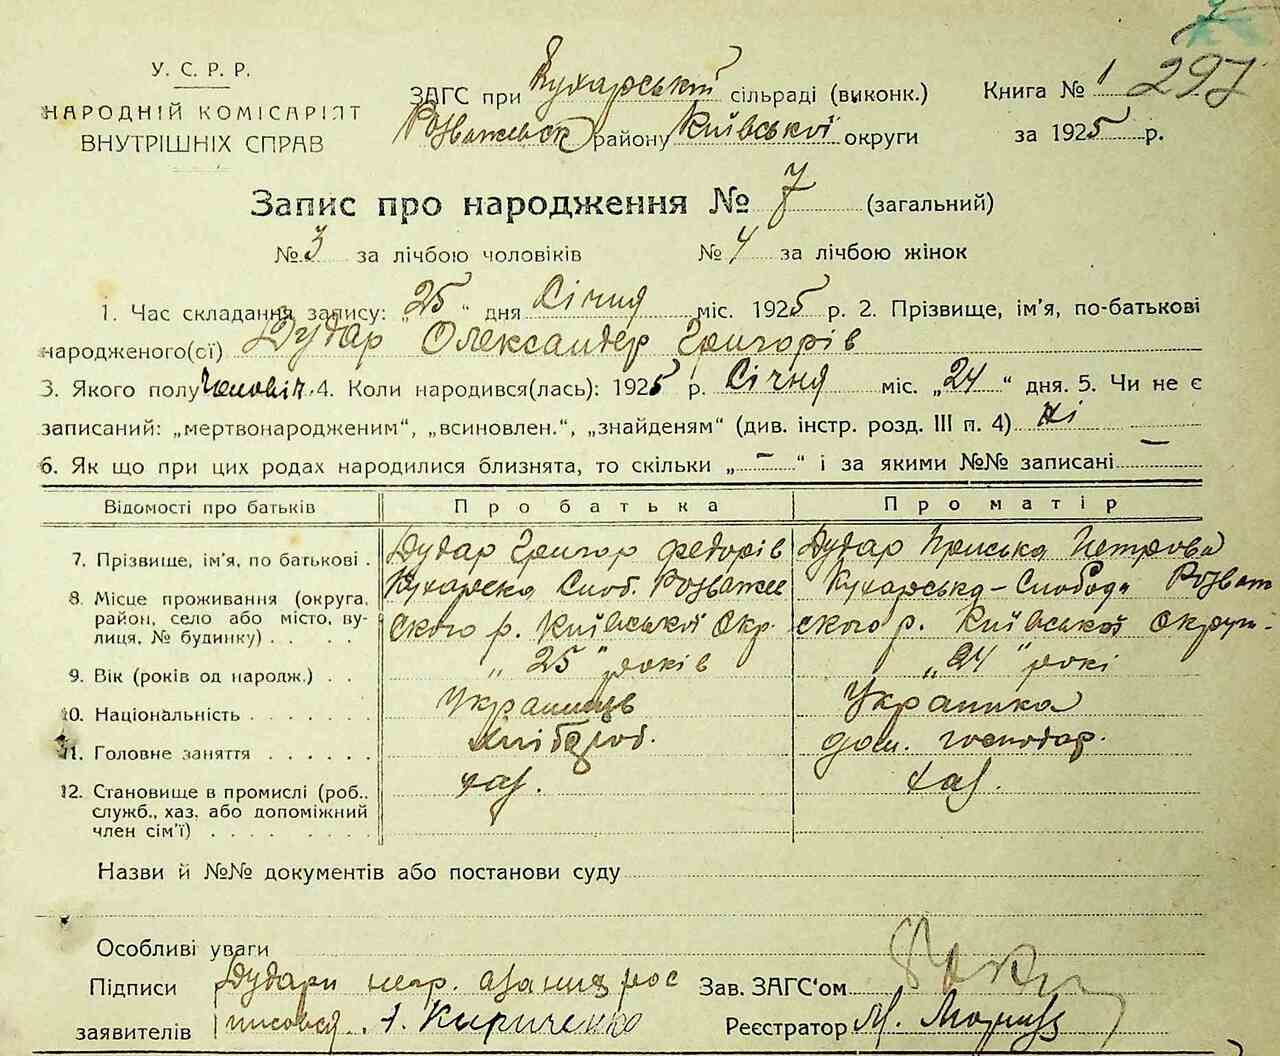 У. С. Р. Р.
НАРОДНІЙ КОМІСАРІЯТ
ВНУТРІШНІХ СПРАВ
ЗАГС при Кухарський сільраді (виконк.)
Розважевск району Київської округи
Книга № 1 297
за 1925 р.
Запис про народження № 7 (загальний)
№ 3 за лічбою чоловіків № 4 за лічбою жінок
1. Час складання запису: „25“ дня Січня міс. 1925 р. 2. Прізвище, ім'я, по-батькові
народженого(ої) Дудар Олександер Григорів
3. Якого полу Человіч. 4. Коли народився(лась): 1925 р. Січня міс. „24“ дня. 5. Чи не є
записаний: „мертвонародженим“, „всиновлен.“, „знайденям“ (див. інстр. розд. III п. 4) ні
6. Як що при цих родах народилися близнята, то скільки „ — “ і за якими №№ записані —
Відомості про батьків Про батька Про матір
7. Прізвище, ім'я, по батькові . Дудар Григор Федорів Дудар Приська Петрова
8. Місце проживання (округа, Кухарска Слоб. Розваже Кухарська-Слобода Розваж
район, село або місто, ву-
лиця, № будинку) . . . . . ского р. Київської Окр. ского р. Київської Округ.
9. Вік (років од народж.) . . „25“ років „24“ рокі
10. Національність . . . . . . . Українець Украинка
11. Головне заняття . . . . . . Хлібороб. дом. господар.
12. Становище в промислі (роб., хаз. хаз.
служб., хаз. або допоміжний
член сім'ї) . . . . . . . .
Назви й №№ документів або постанови суду
Особливі уваги
Підписи Дудари неgr. за них рос
заявителів писовся . А. Кириченко
Зав. ЗАГС'ом
Реєстратор М.